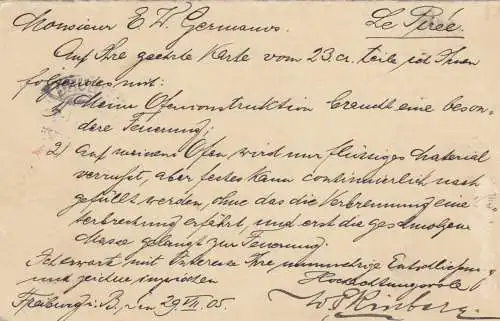 Monsieur E. W. Germanos.
Le Pirée.
Auf Ihre geehrte Karte vom 23. cr. teile ich Ihnen
folgendes mit:
1) Meine Ofenconstruktion braucht eine beson-
dere Feuerung;
2) auf meinem Ofen wird nur flüssiges Material
, aber festes kann continuierlich nach
gefüllt werden, ohne das die Verbrennung eine
terbrechung erfährt, und erst die geschmolzene
Masse gelangt zur Feuerung.
mit Interesse Ihre Entschliessung
und zeichne inzwischen
Hochachtungsvoll
Freiburg i. B., den 29. VII. 05.